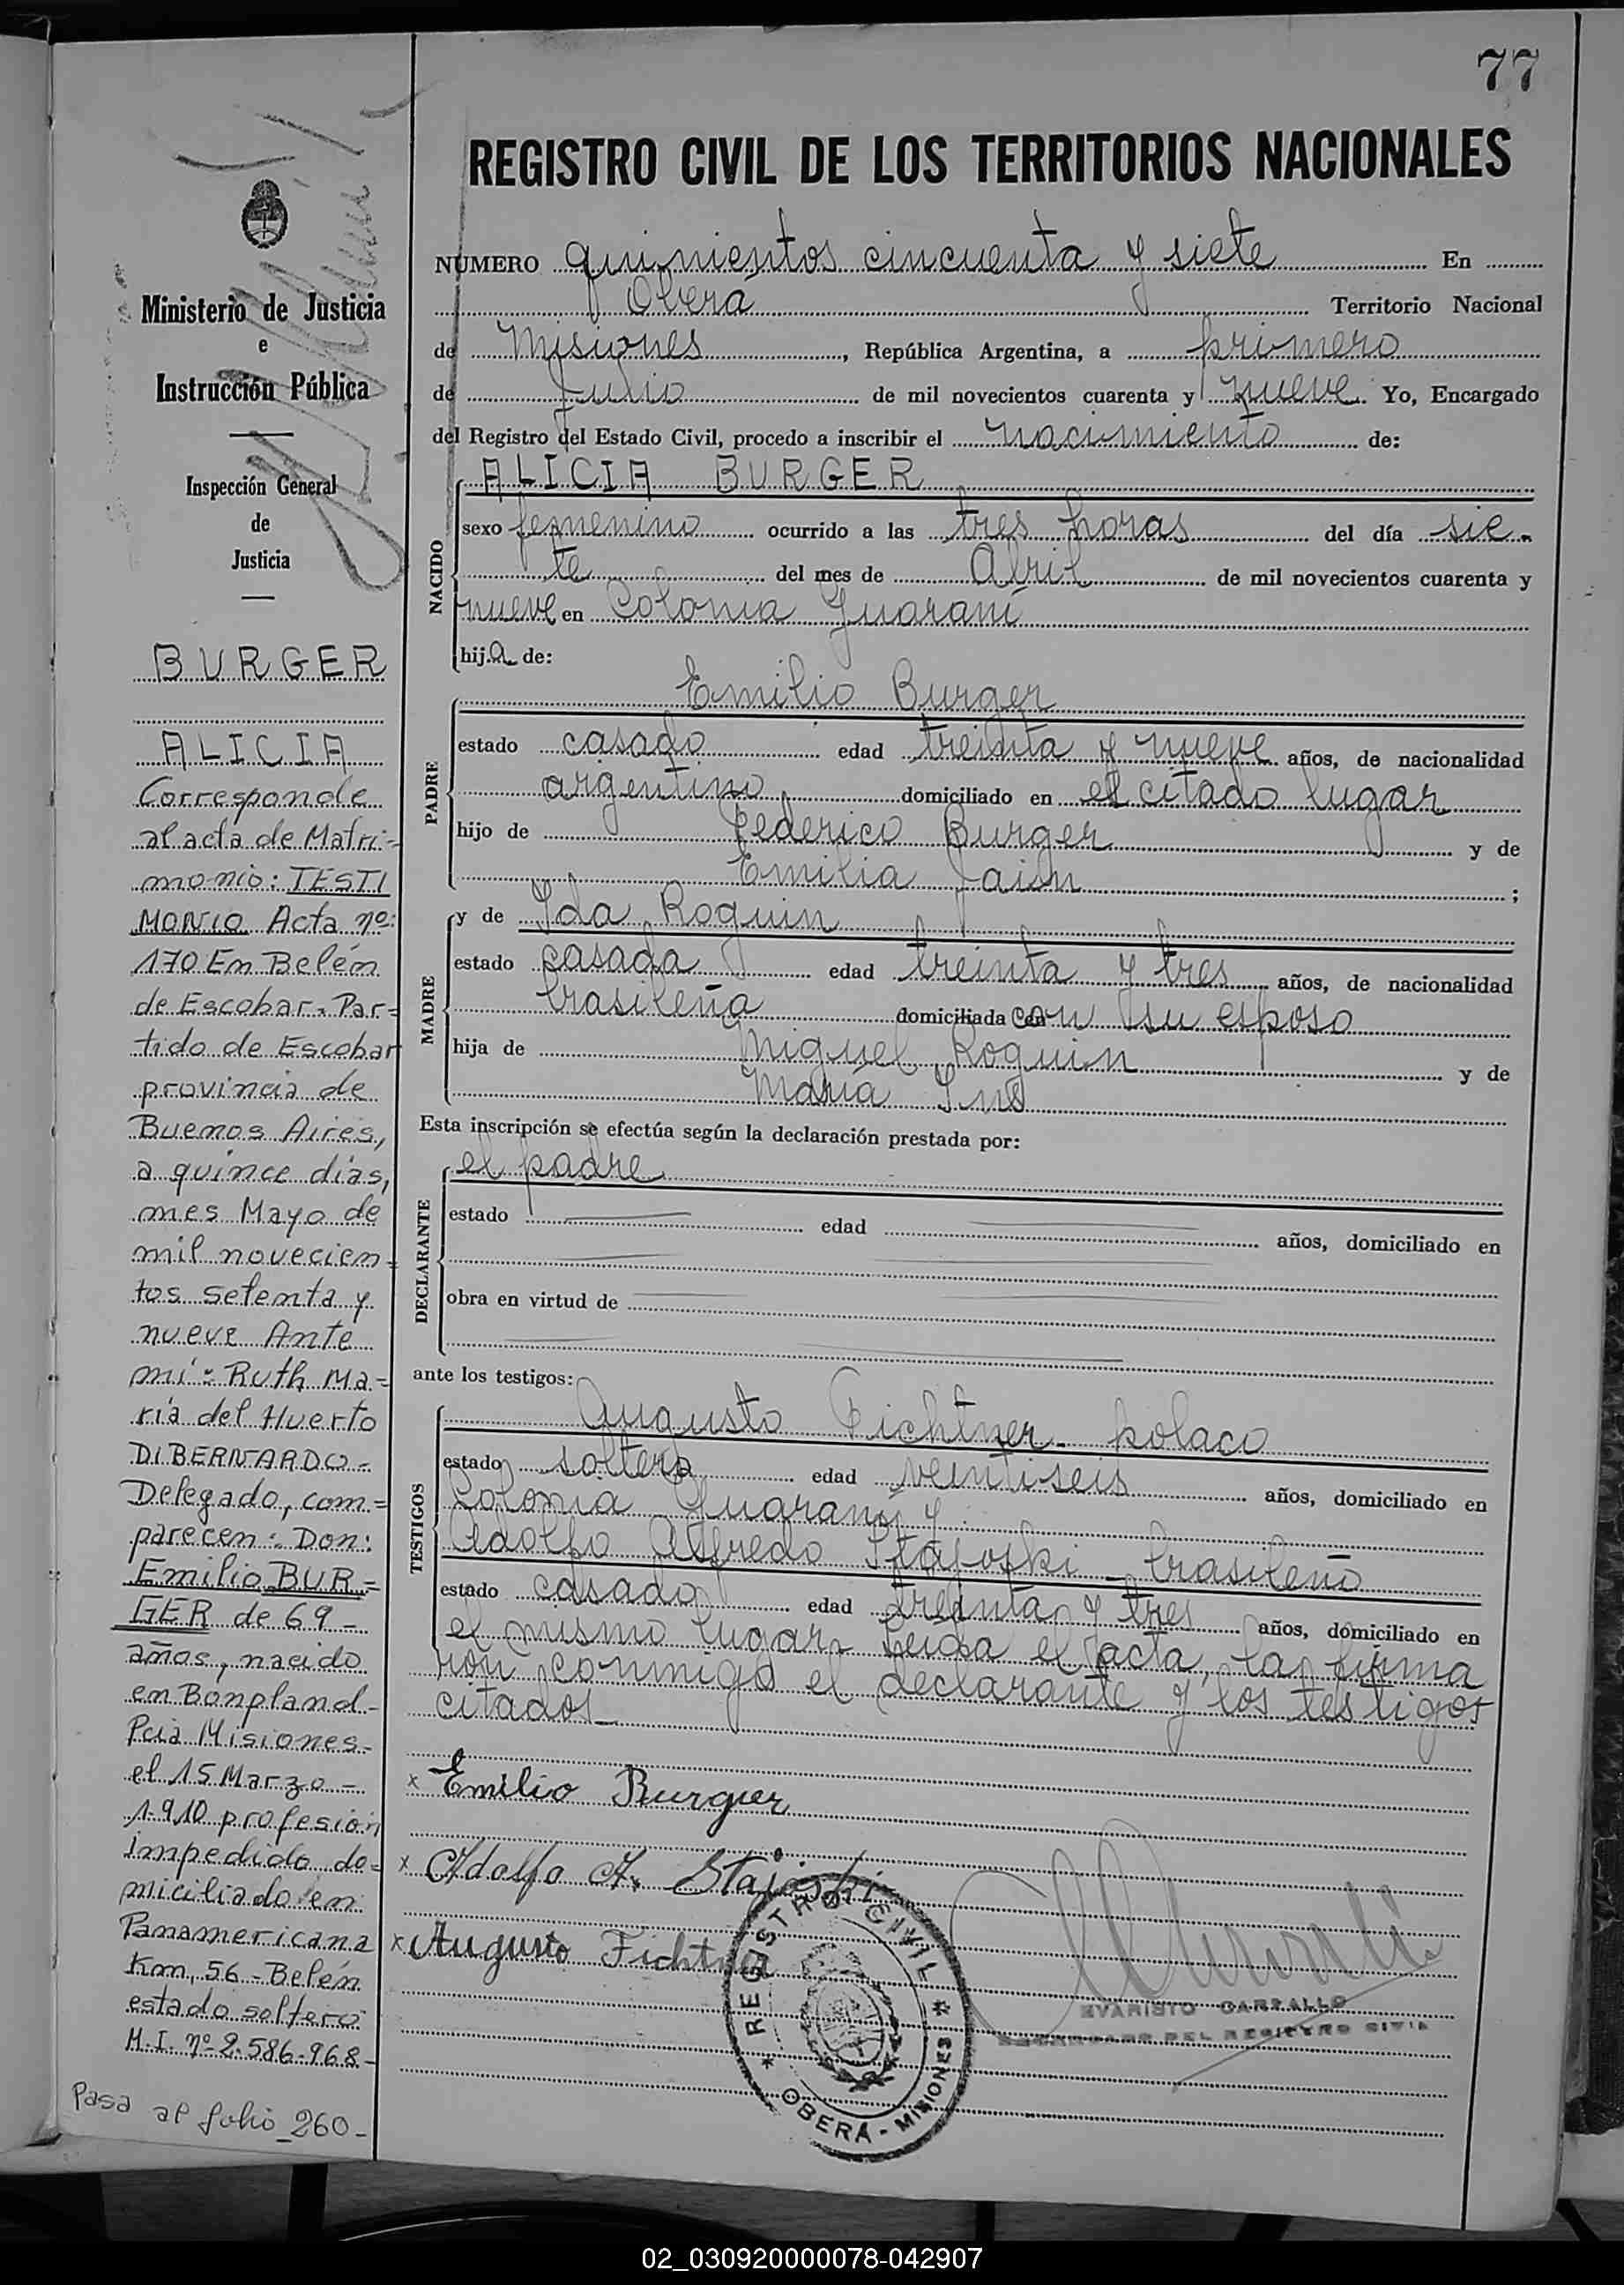 77
REGISTRO CIVIL DE LOS TERRITORIOS NACIONALES
NUMERO quinientos cincuenta y siete En
Oberá Territorio Nacional
de Misiones, República Argentina, a primero
de Julio de mil novecientos cuarenta y nueve. Yo, Encargado
del Registro del Estado Civil, procedo a inscribir el nacimiento de:
NACIDO
ALICIA BURGER
sexo femenino ocurrido a las tres horas del día sie-
te del mes de Abril de mil novecientos cuarenta y
nueve en Colonia Guaraní
hija de:
PADRE
Emilio Burger
estado casado edad treinta y nueve años, de nacionalidad
argentino domiciliado en el citado lugar
hijo de Federico Burger y de
Emilia Jaisn ;
MADRE
y de Ida Roguin
estado casada edad treinta y tres años, de nacionalidad
brasileña domiciliada con su esposo
hija de Miguel Roguin y de
María
Esta inscripción se efectúa según la declaración prestada por:
DECLARANTE
el padre
estado edad años, domiciliado en
obra en virtud de
ante los testigos:
TESTIGOS
Augusto Fichtner - polaco
estado soltero edad veintiseis años, domiciliado en
Colonia Guaraní y
Adolfo Alfredo - brasileño
estado casado edad treinta y tres años, domiciliado en
el mismo lugar. Leida el acta, la firma
ron conmigo el declarante y los testigos
citados
x Emilio Burger
x Adolfo A.
x Augusto Fichtner
REGISTRO CIVIL
OBERÁ - MISIONES
EVARISTO
ENCARGADO DEL REGISTRO CIVIL
Ministerio de Justicia
e
Instrucción Pública
Inspección General
de
Justicia
BURGER
ALICIA
Corresponde
al acta de Matri=
monio: TESTI
MONIO Acta nº:
170 En Belém
de Escobar. Par=
tido de Escobar
provincia de
Buenos Aires,
a quince días,
mes Mayo de
mil novecien=
tos setenta y
nueve Ante
mí: Ruth Ma=
ría del Huerto
DIBERNARDO-
Delegado, com=
parecen: Don:
Emilio BUR=
GER de 69-
años, nacido
en Bonpland-
Pcia Misiones-
el 15 Marzo-
1.910 profesión
impedido do=
miciliado en
Panamericana
Km, 56-Belén
estado soltero
M.I. nº 2.586.968-
Pasa al folio 260-
02_030920000078-042907